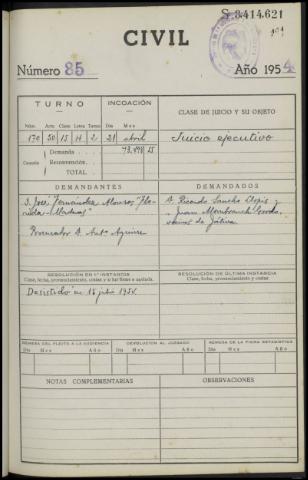 S.8414.621
CIVIL
Número 85 Año 1954
TURNO INCOACIÓN CLASE DE JUICIO Y SU OBJETO
Núm. Arts. Clase Letra Turno Día Mes
170 50 15 H 2 21 abril Juicio ejecutivo
Demanda
Cuantía Reconvención
TOTAL
DEMANDANTES DEMANDADOS
D. José Fernández Alonso D. Ricardo Sancho
y Juan
Procurador D. Antº Aguirre
RESOLUCIÓN EN 1ª INSTANCIA RESOLUCIÓN DE ÚLTIMA INSTANCIA
Clase, fecha, pronunciamiento, costas y si fué firme o apelada. Clase, fecha, pronunciamiento y costas
Desistido en 16 julio 1954
REMESA DEL PLEITO A LA AUDIENCIA DEVOLUCIÓN AL JUZGADO REMESA DE LA FICHA ESTADÍSTICA
Día Mes Año Día Mes Año Día Mes Año
NOTAS COMPLEMENTARIAS OBSERVACIONES